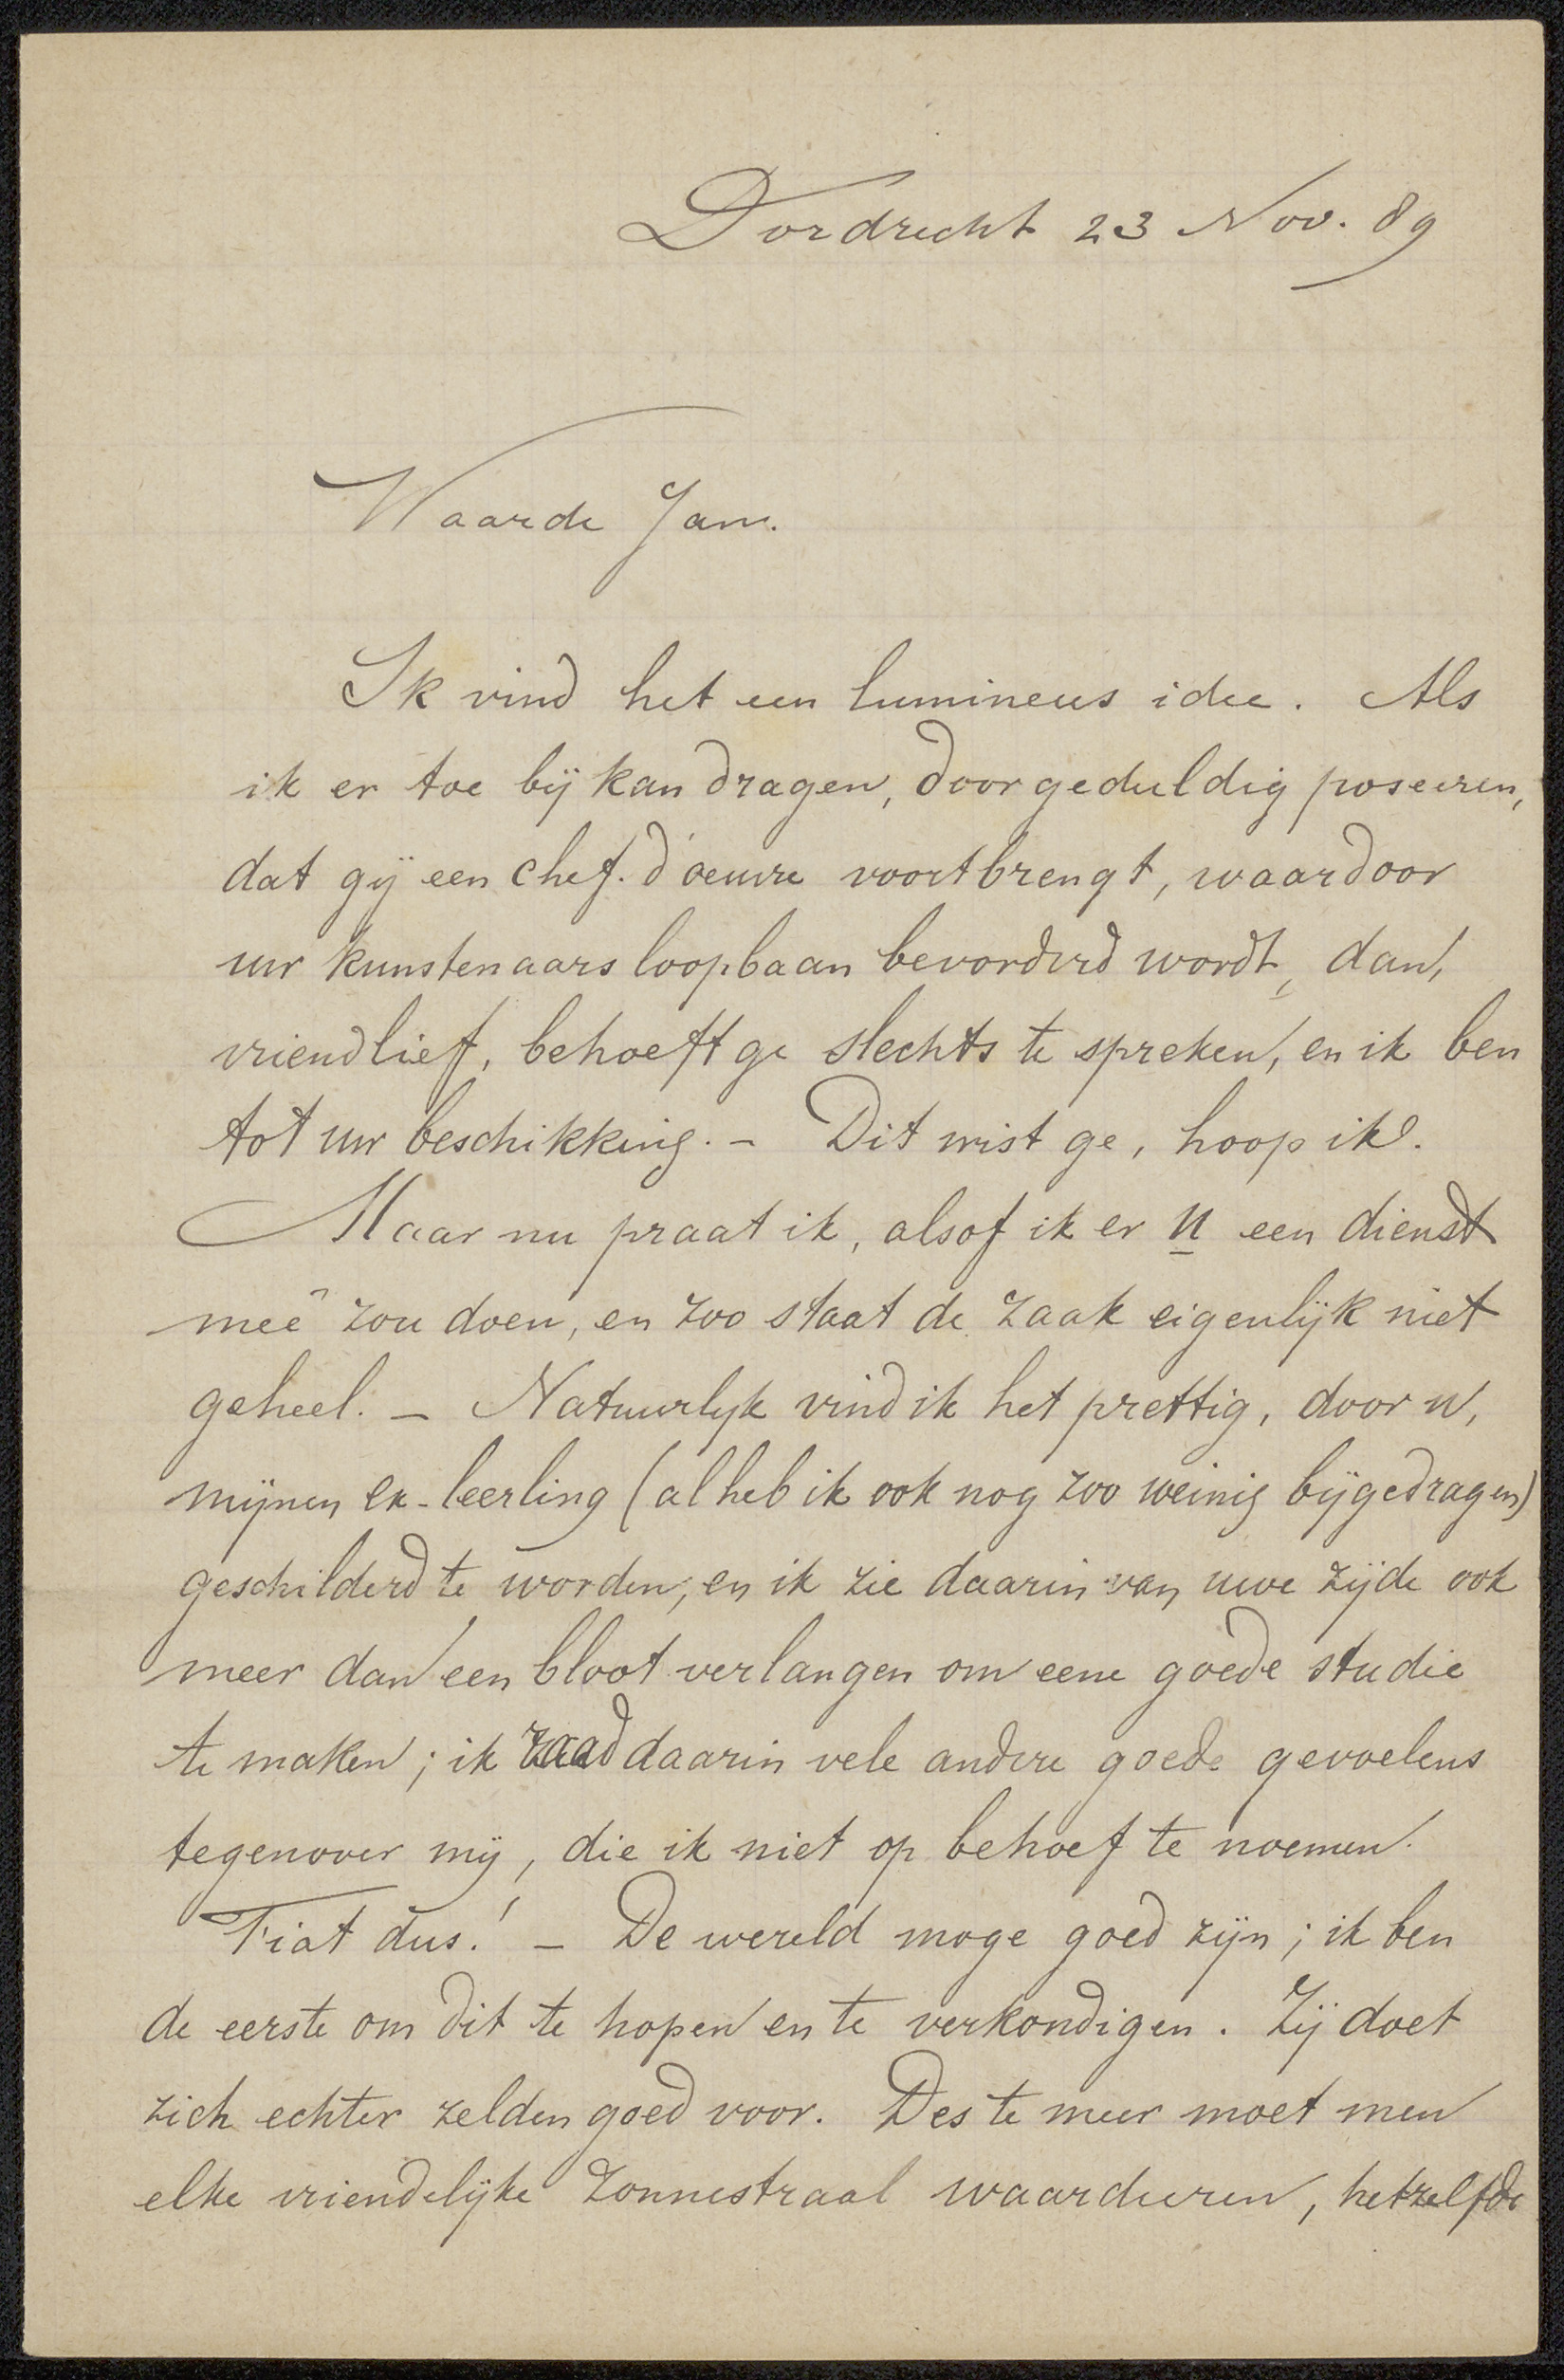 Dordrecht 23 Nov. 89
Waarde Jan.
Ik vind het een lumineus idee. Als
ik er toe bij kan dragen, door geduldig poseeren,
dat gij een chef. d'oeuvre voortbrengt, waardoor
uw kunstenaars loopbaan bevorderd wordt, dan,
vriendlief, behoeft ge slechts te spreken, en ik ben
tot uw beschikking. - Dit wist ge, hoop ik.
Maar nu praat ik, alsof ik er u een dienst
meê zou doen, en zoo staat de zaak eigenlijk niet
geheel. - Natuurlijk vind ik het prettig, door u,
mijnen ex-leerling (al heb ik ook nog zoo weinig bijgedragen)
geschilderd te worden, en ik zie daarin van uwe zijde ook
meer dan een bloot verlangen om eene goede studie
te maken; ik daarin vele andere goede gevoelens
tegenover mij, die ik niet op behoef te noemen.
Fiat dus! - De wereld moge goed zijn; ik ben
de eerste om dit te hopen en te verkondigen. Zij doet
zich echter zelden goed voor. Des te meer moet men
elke vriendelijke zonnestraal waardeeren, hetzelfde